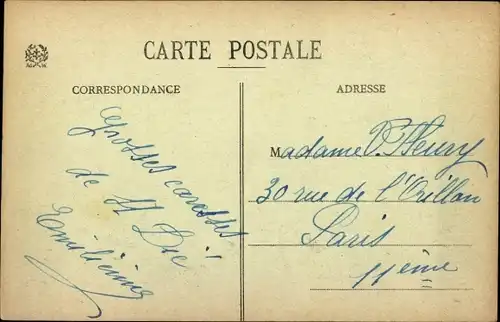 CARTE POSTALE
CORRESPONDANCE
Grosses caresses
de St Dié !
Emilienne
ADRESSE
Madame V. Fleury
30 rue de l'Orillon
Paris
11ème